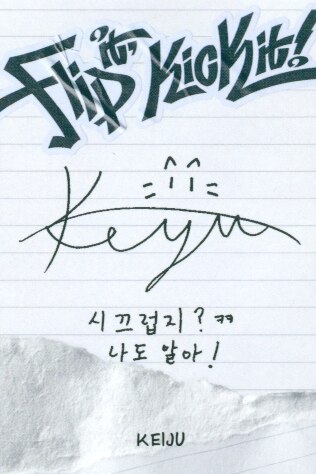 Flip it, Kick it!
Keiju
시끄럽지? ㅋㅋ
나도 알아!
KEIJU